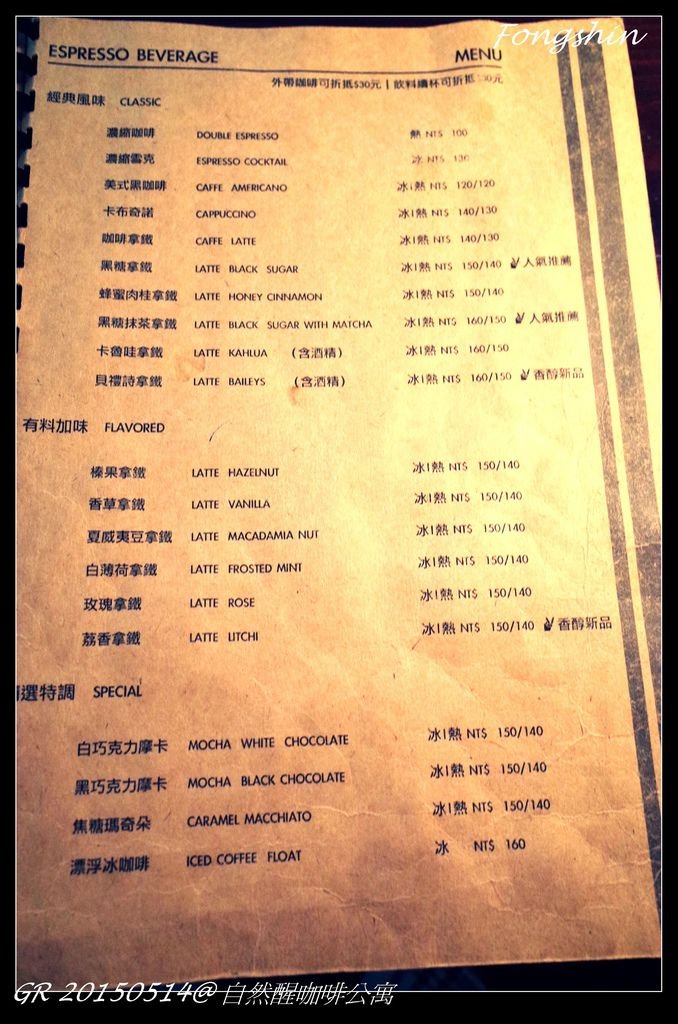 Fongshin
ESPRESSO BEVERAGE MENU
外帶咖啡可折抵$30元 | 飲料續杯可折抵
經典風味 CLASSIC
濃縮咖啡 DOUBLE ESPRESSO 熱 NT$ 100
濃縮雪克 ESPRESSO COCKTAIL 冰 NT$ 130
美式黑咖啡 CAFFE AMERICANO 冰|熱 NT$ 120/120
卡布奇諾 CAPPUCCINO 冰|熱 NT$ 140/130
咖啡拿鐵 CAFFE LATTE 冰|熱 NT$ 140/130
黑糖拿鐵 LATTE BLACK SUGAR 冰|熱 NT$ 150/140 人氣推薦
蜂蜜肉桂拿鐵 LATTE HONEY CINNAMON 冰|熱 NT$ 150/140
黑糖抹茶拿鐵 LATTE BLACK SUGAR WITH MATCHA 冰|熱 NT$ 160/150 人氣推薦
卡魯哇拿鐵 LATTE KAHLUA (含酒精) 冰|熱 NT$ 160/150
貝禮詩拿鐵 LATTE BAILEYS (含酒精) 冰|熱 NT$ 160/150 香醇新品
有料加味 FLAVORED
榛果拿鐵 LATTE HAZELNUT 冰|熱 NT$ 150/140
香草拿鐵 LATTE VANILLA 冰|熱 NT$ 150/140
夏威夷豆拿鐵 LATTE MACADAMIA NUT 冰|熱 NT$ 150/140
白薄荷拿鐵 LATTE FROSTED MINT 冰|熱 NT$ 150/140
玫瑰拿鐵 LATTE ROSE 冰|熱 NT$ 150/140
荔香拿鐵 LATTE LITCHI 冰|熱 NT$ 150/140 香醇新品
選特調 SPECIAL
白巧克力摩卡 MOCHA WHITE CHOCOLATE 冰|熱 NT$ 150/140
黑巧克力摩卡 MOCHA BLACK CHOCOLATE 冰|熱 NT$ 150/140
焦糖瑪奇朵 CARAMEL MACCHIATO 冰|熱 NT$ 150/140
漂浮冰咖啡 ICED COFFEE FLOAT 冰 NT$ 160
GR 20150514@自然醒咖啡公寓